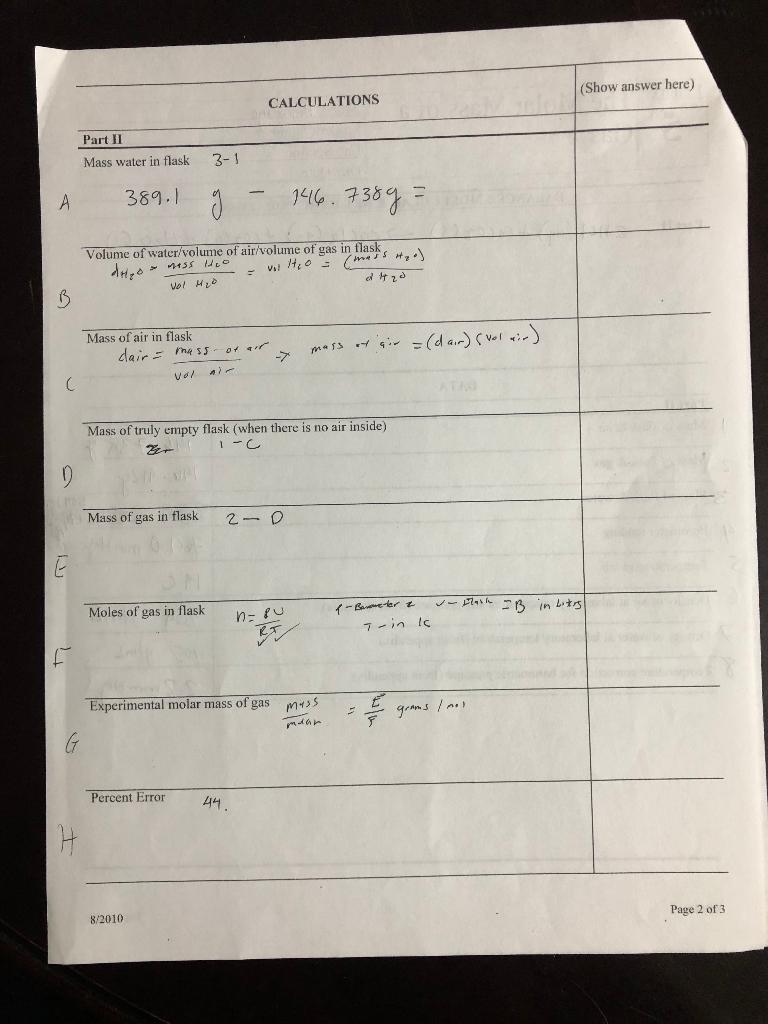 CALCULATIONS
(Show answer here)
Part II
Mass water in flask 3-1
A 389.1 g - 146.738g =
Volume of water/volume of air/volume of gas in flask
dH2O = mass H2O / vol H2O = vol H2O = (mass H2O) / d H2O
B
Mass of air in flask
dair = mass of air / vol air → mass of air = (dair) (vol air)
C
Mass of truly empty flask (when there is no air inside)
1-C
D
Mass of gas in flask 2 - D
E
Moles of gas in flask n = PV / RT P-Barometer V- flask = B in liters
T-in K
F
Experimental molar mass of gas mass / = E / F grams / mol
G
Percent Error 44.
H
8/2010
Page 2 of 3